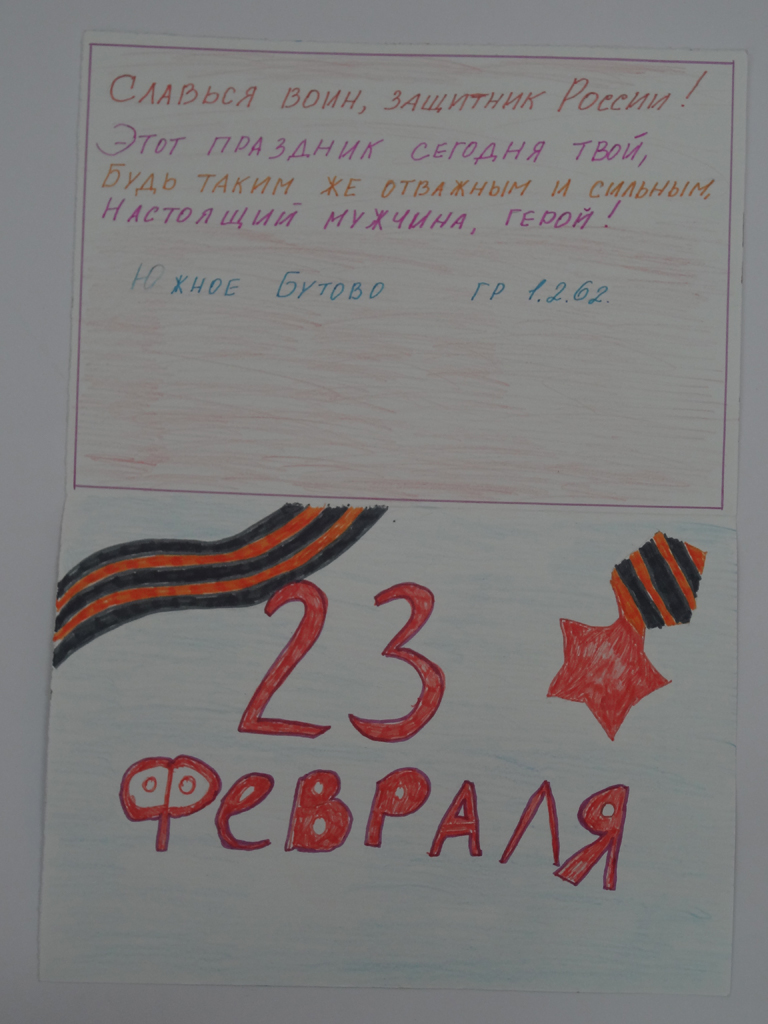 Славься воин, защитник России!
Этот праздник сегодня твой,
Будь таким же отважным и сильным,
Настоящий мужчина, герой!
Южное Бутово гр 1.2.62.
23
ФЕВРАЛЯ